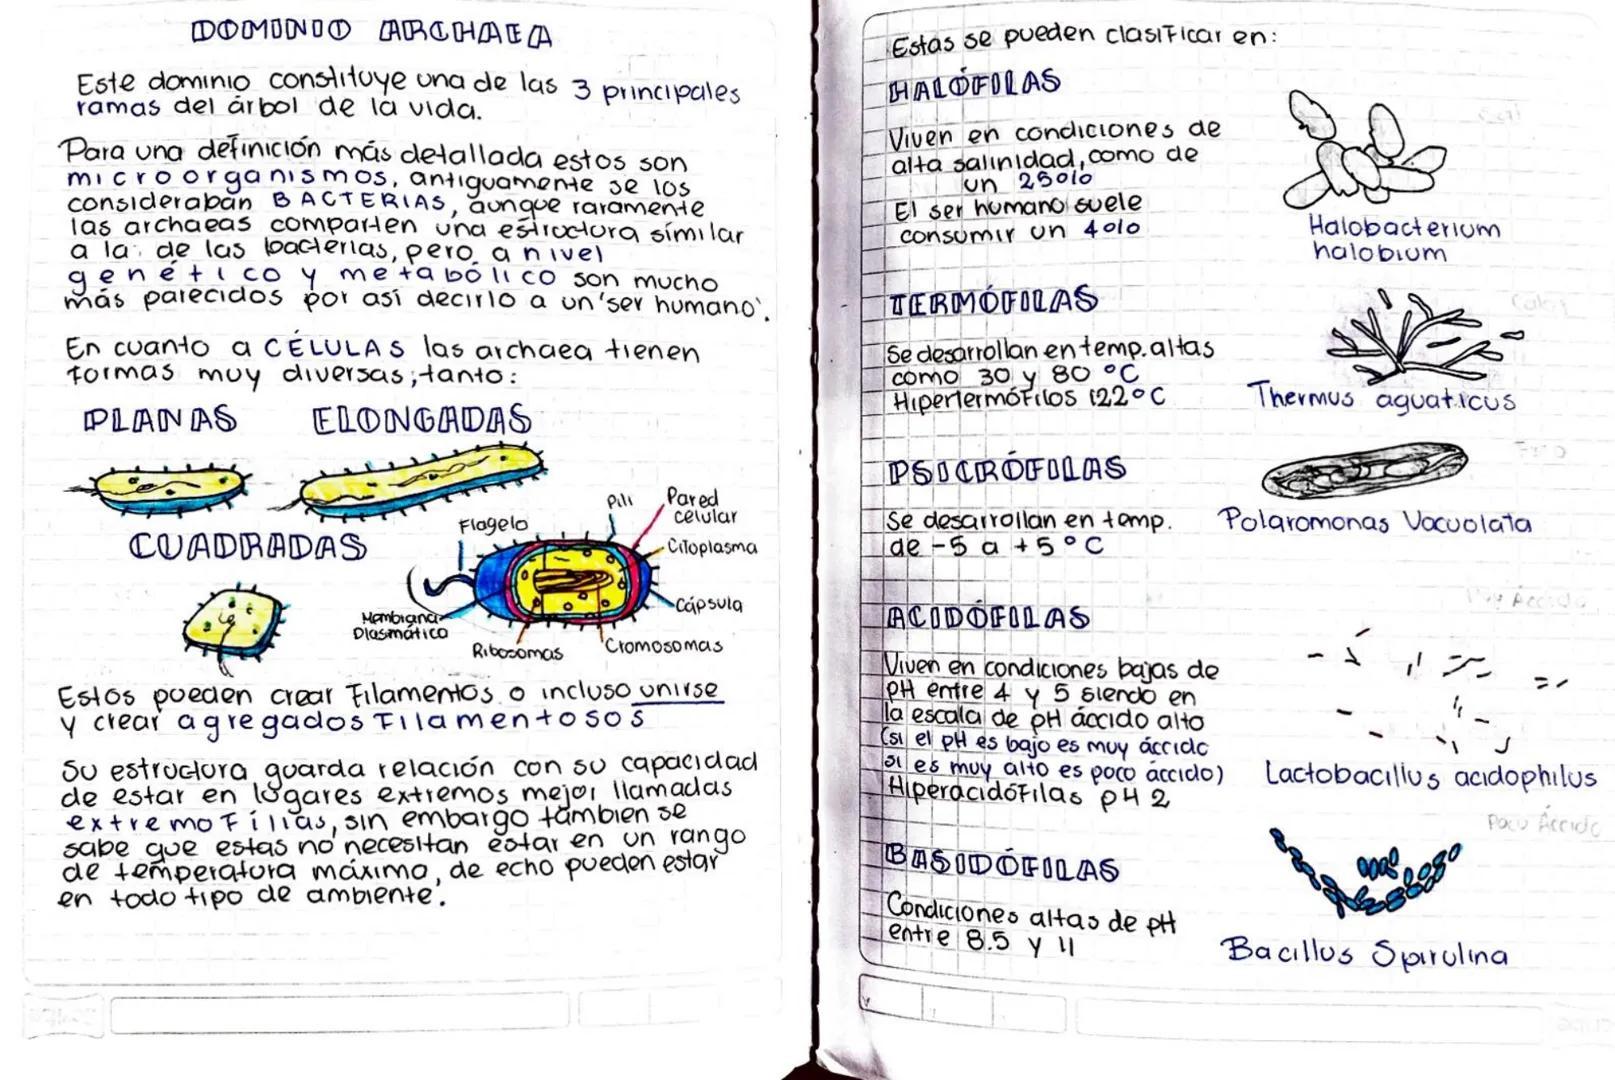 DOMINIO ARCHAEA
Este dominio constituye una de las 3 principales
ramas del árbol de la vida.
Para una definición más detallada estos son
microorganismos, antiguamente se los
consideraban BACTERIAS, aunque raramente
las archaeas comparten una estructura similar
a la de las bacterias, pero a nivel
genético y metabólico son mucho
más parecidos por así decirlo a un 'ser humano'.
En cuanto a CÉLULAS las archaea tienen
formas muy diversas; tanto:
PLANAS ELONGADAS
CUADRADAS
Flagelo
Pili
Pared
celular
Citoplasma
Cápsula
Cromosomas
Ribosomas
Membrana
Plasmática
Estos pueden crear Filamentos o incluso unirse
y crear agregados Filamentosos
Su estructura guarda relación con su capacidad
de estar en lugares extremos mejor llamadas
extremoFilias, sin embargo tambien se
sabe que estas no necesitan estar en un rango
de temperatura máximo, de echo pueden estar
en todo tipo de ambiente.
Estas se pueden clasificar en:
HALÓFILAS
Viven en condiciones de
alta salinidad, como de
un 25%
El ser humano suele
consumir un 4%
Halobacterium
halobium
TERMÓFILAS
Se desarrollan en temp. altas
como 30 y 80 °C
Hipertermófilos 122°C
Thermus aquaticus
PSICRÓFILAS
Se desarrollan en temp.
de -5 a +5°C
Polaromonas Vacuolata
ACIDÓFILAS
Viven en condiciones bajas de
pH entre 4 y 5 siendo en
la escala de pH áccido alto
(si el pH es bajo es muy áccido
si es muy alto es poco áccido)
Hiperacidófilas pH 2
Lactobacillus acidophilus
Poco Áccido
BASIDÓFILAS
Condiciones altas de pH
entre 8.5 y 11
Bacillus Spirulina